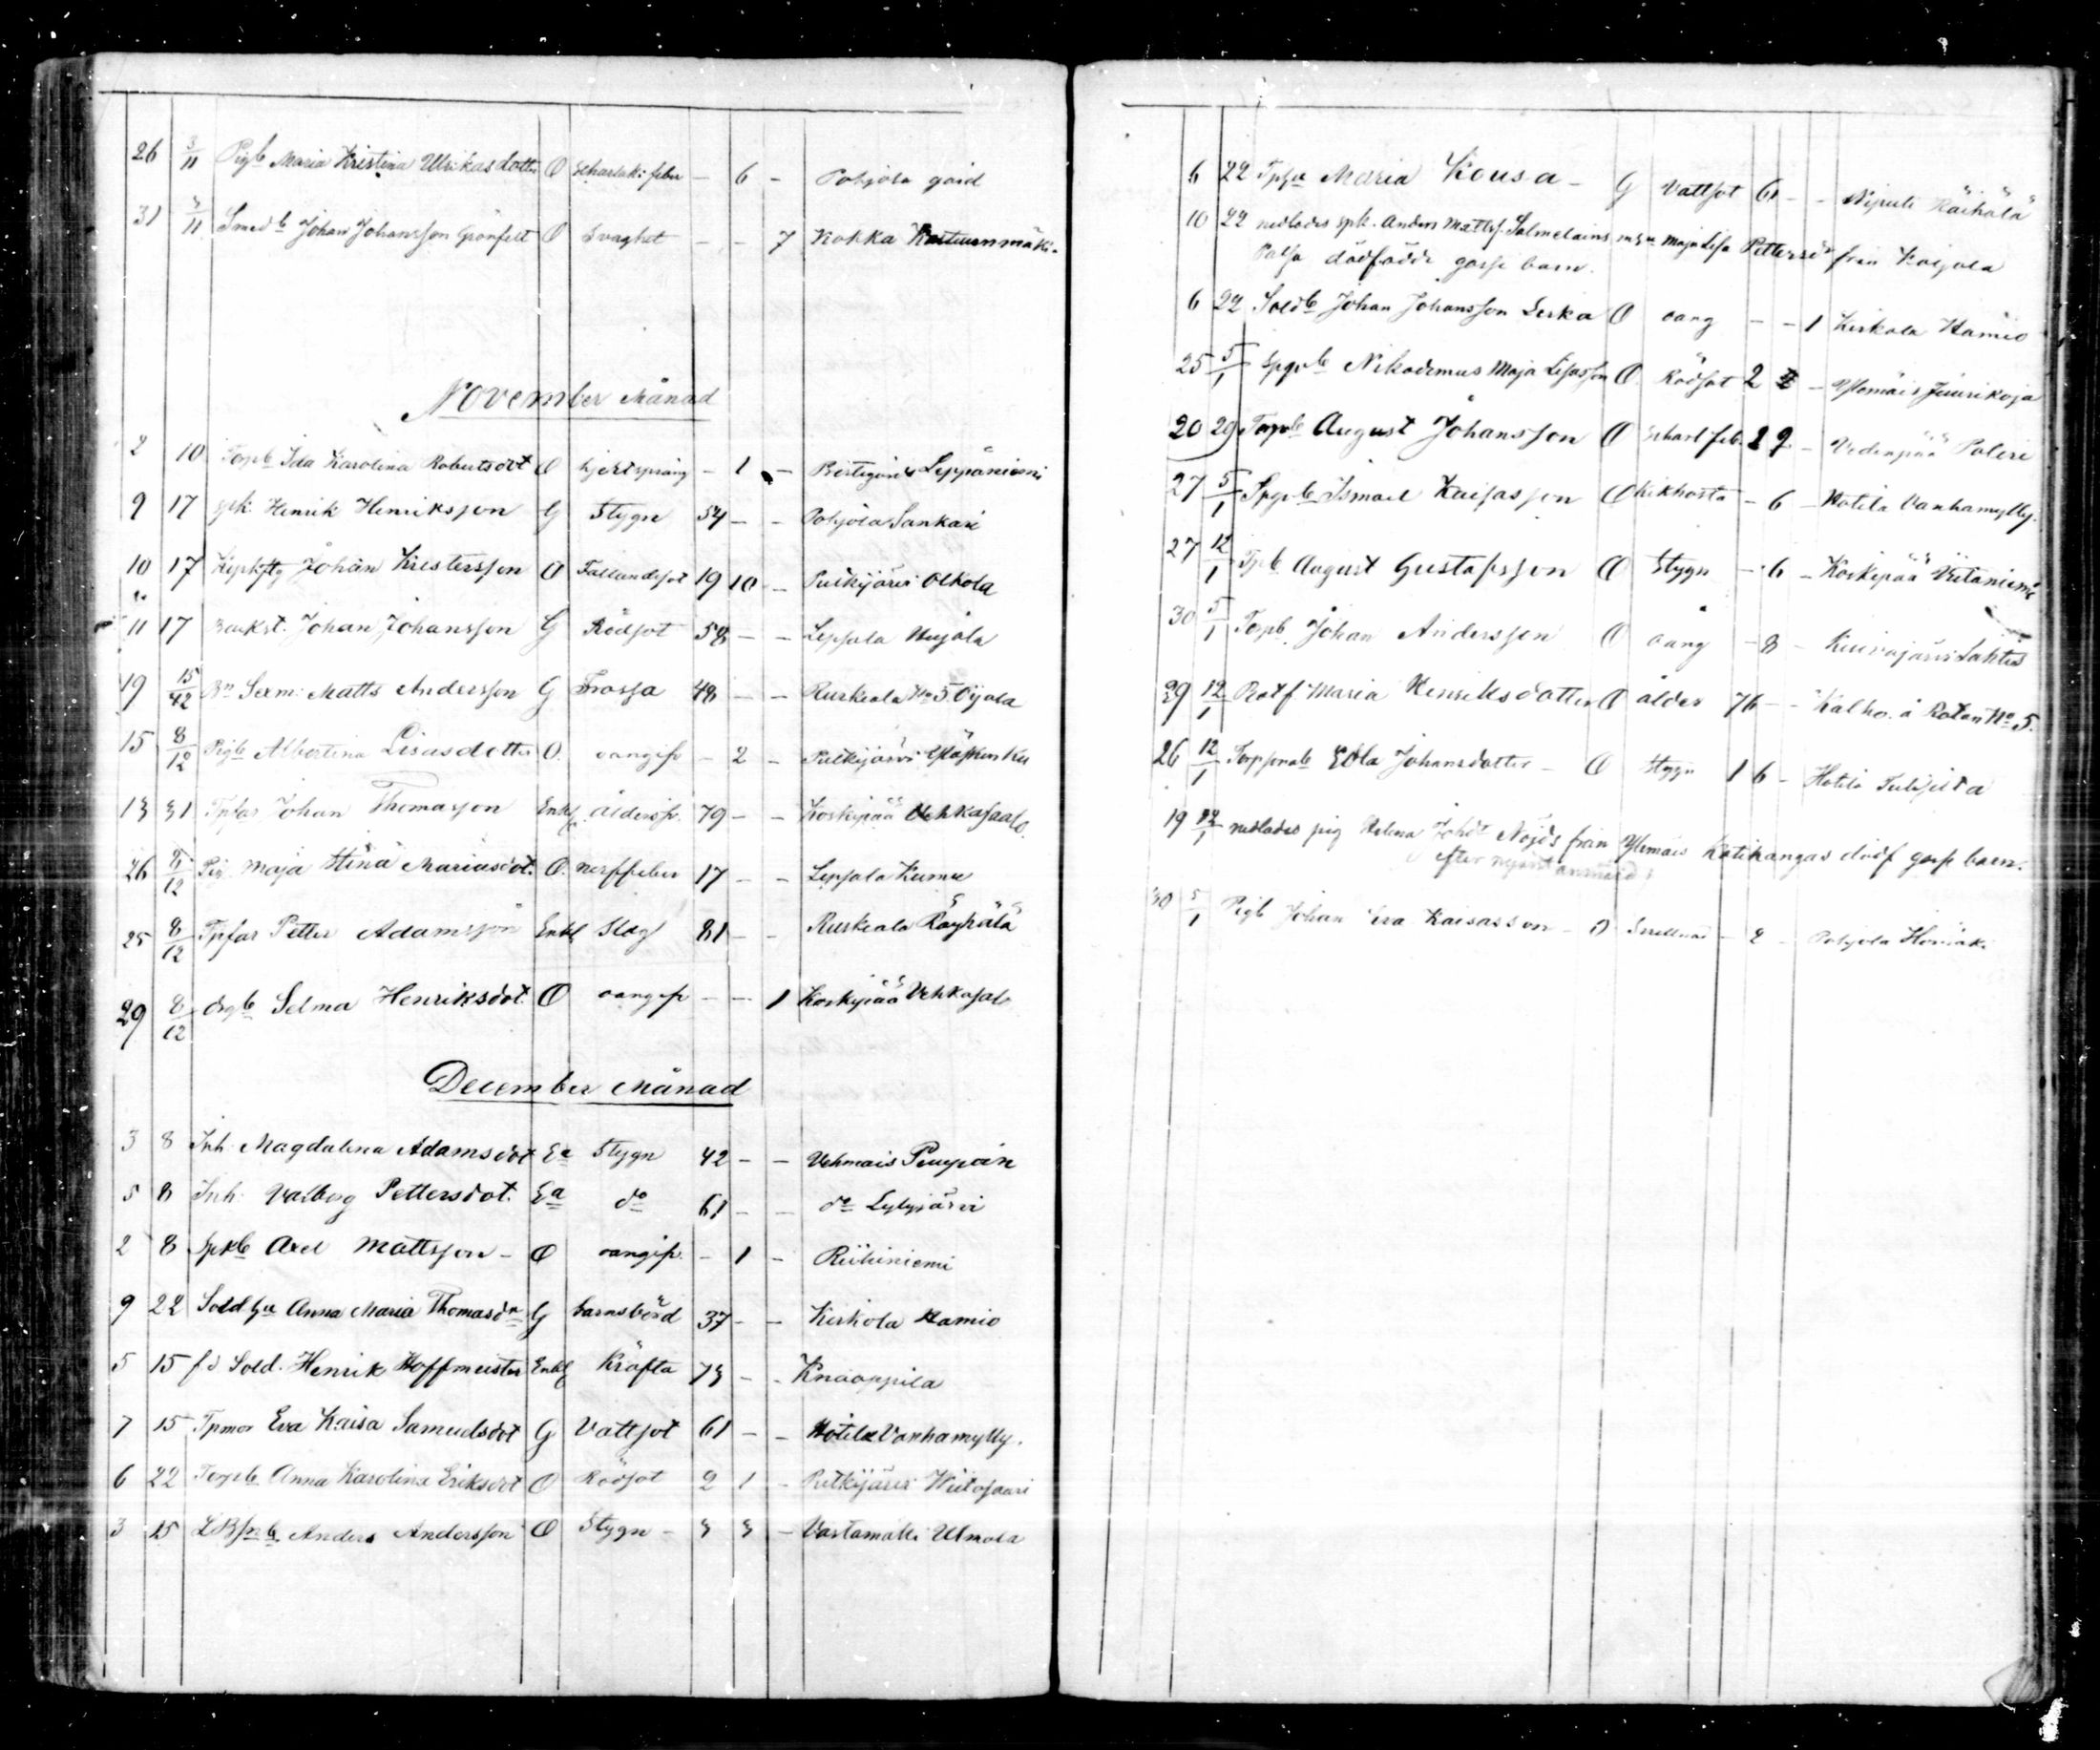 26 3/11 Pigb Maria Kristina Ulrikasdotter O Scharlak: feber - 6 - Pohjola gård
31 3/11 Smedb Johan Johansson Grönfelt O Svaghet - - 7 Kokka
November Månad
2 10 Torpb Ida Karolina Robertsdot O hjertsprång - 1 - Leppäniemi
9 17 Henrik Henriksson G Stygn 54 - - Pohjola Sankari
10 17 Johan Kristersson O Fallandesot 19 10 - Pitkijärvi Ollola
11 17 Backst. Johan Johansson G Rödsot 58 - - Lepsala Nujala
19 15/12 Bn Sexm: Matts Andersson G Frossa 48 - - Ruskeala No 5 Ojala
15 8/12 Pigb Albertina Lisasdotter O oangifv - 2 - Pitkijärvi
13 31 Tpfar Johan Thomasson Enkl ålderdr. 79 - - Koskipää Vehkasaalo
26 8/12 Pig Maja Stina Mariasdot. O. nerffeber 17 - - Lepsala Kumu
25 8/12 Tpfar Petter Adamsson Enkl Slag 81 - - Ruskeala Räyhälä
29 8/12 Selma Henriksdot. O oangifv - - 1 Koskipää Vehkasalo
December Månad
3 8 Inh. Magdalena Adamsdot Ea Stygn 42 - - Vehmais
5 8 Inh. Valborg Pettersdot. Ea do 61 - - do Lylyjärvi
2 8 Spkb Axel Mattsson - O oangifv. - 1 - Riihiniemi
9 22 Soldhu Anna Maria Thomasdr G barnsbörd 37 - - Kirkola Hamio
5 15 fd Sold. Henrik Hoffmeister Enkl Kräfta 73 - - Knaappila
7 15 Tpmor Eva Kaisa Samuelsdot G Vattsot 61 - - Hotila Vanhamylly.
6 22 Torpb Anna Karolina Eriksdot O Rödsot 2 1 - Pitkijärvi Wiitasaari
3 15 Anders Andersson O Stygn - 3 3 - Vastamäki Ulmola
6 22 Tphu Maria Kousa - G Vattsot 61 - - Nipuli Räihälä
10 22 nedlades spk. Anders Mattss. Salmelains m hu Maja Lisa Pettersdr från Koijola
Palsa dödfödde gosse barn.
6 22 Soldb Johan Johansson Lerka O oang - - 1 Kirkola Hamio
25 5/1 Nikodemus Maja Lisasson O. Rödsot 2 - Ylemäis Juurikoja
20 29 Torpb August Johansson O Scharl feb. 2 9 - Vedenpää Poleri
27 5/1 Ismael Kaisasson O kikhosta - 6 - Hotila Vanhamylly.
27 12/1 Tpb August Gustafsson O Stygn - 6 - Koskipää Viitaniemi
30 5/1 Torpb. Johan Andersson O oång - 8 - Kuivajärvi Lahtis
29 12/1 Maria Henriksdotter O ålder 76 - - Kalho. å Rotan No 5.
26 12/1 Edla Johansdotter - O Stygn 1 6 - Hotila
19 12/1 nedlades pig Helena Johdr Nöjds från Ylimäis Kotikangas dödf goss barn.
efter
30 5/1 Pigb Johan Eva Kaisasson - O - 2 - Pohjola